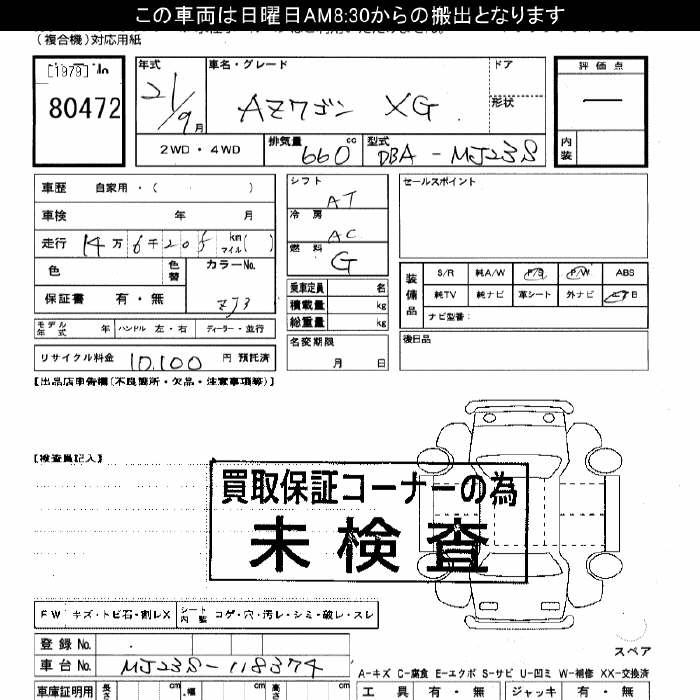 この車両は日曜日AM8:30からの搬出となります
(複合機)対応用紙
[1979]
80472
年式 21/9月
車名・グレード
AZワゴン XG
ドア
形状
評価点
—
内装
2WD・4WD
排気量 660 cc
型式 DBA-MJ23S
車歴 自家用・( )
車検 年 月
走行 14万6千205 km マイル( )
色 色替
カラーNo. ZJ3
保証書 有・無
モデル年式 年 ハンドル 左・右 ディーラー・並行
リサイクル料金 10,100 円 預託済
シフト AT
冷房 AC
燃料 G
乗車定員 名
積載量 kg
総重量 kg
名変期限
月 日
セールスポイント
装備品
S/R 純A/W P/S P/W ABS
純TV 純ナビ 革シート 外ナビ エアB
ナビ型番:
後日品
【出品店申告欄(不良箇所・欠品・注意事項等)】
【検査員記入】
買取保証コーナーの為
未検査
FW キズ・トビ石・割レX シート内装 コゲ・穴・汚レ・シミ・破レ・スレ
登録No.
車台No. MJ23S-118374
スペア
A-キズ C-腐食 E-エクボ S-サビ U-凹ミ W-補修 XX-交換済
車庫証明用 長さ cm 幅 cm 高さ cm
工具 有・無 ジャッキ 有・無